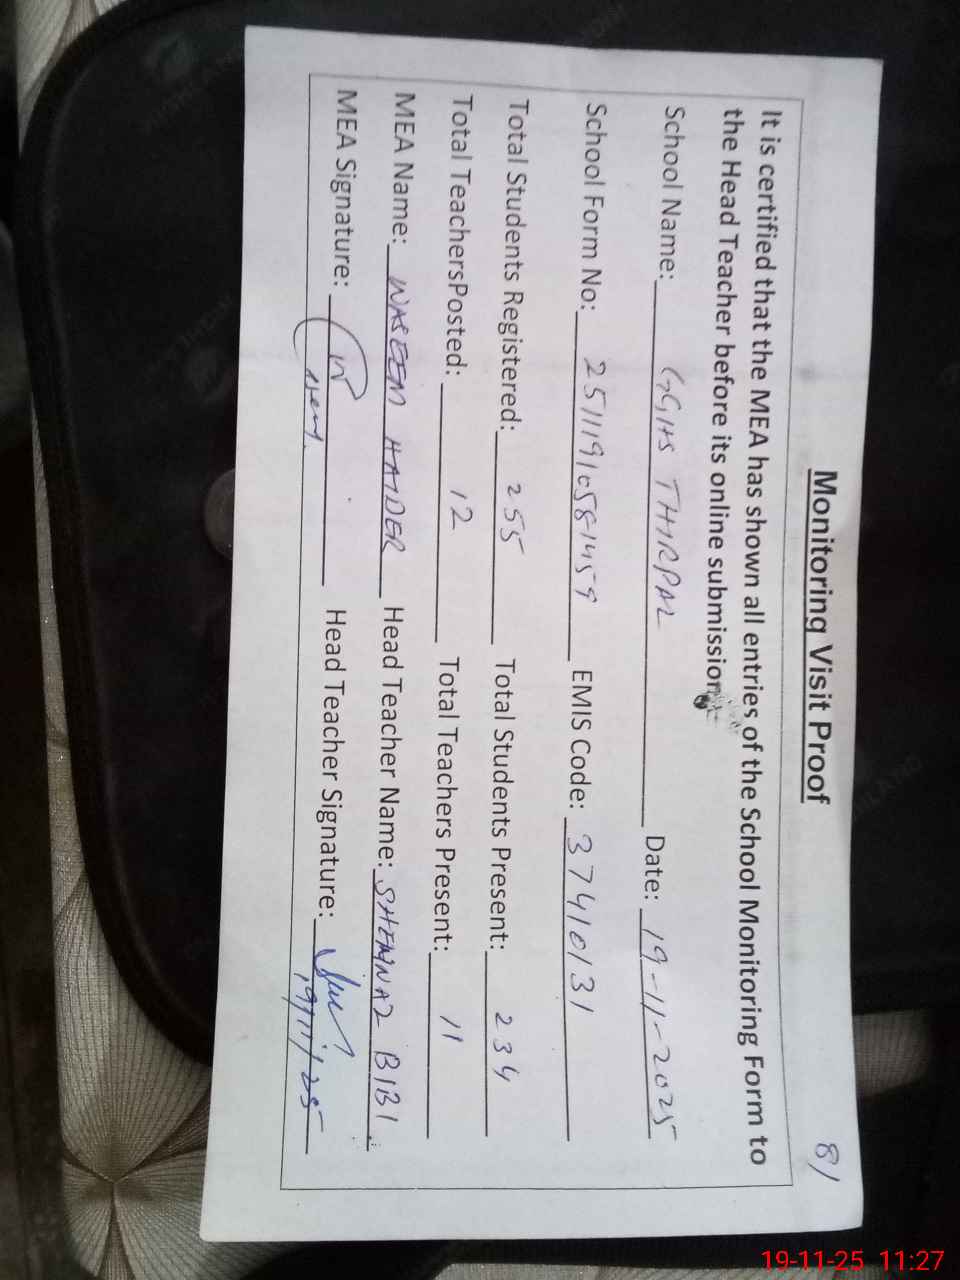 81
Monitoring Visit Proof
It is certified that the MEA has shown all entries of the School Monitoring Form to
the Head Teacher before its online submission.
School Name: GGHS THIRPAL Date: 19-11-2025
School Form No: 25111910581459 EMIS Code: 37410131
Total Students Registered: 255 Total Students Present: 234
Total TeachersPosted: 12 Total Teachers Present: 11
MEA Name: WASEEM HAIDER Head Teacher Name: SHEHNAZ BIBI
MEA Signature: Head Teacher Signature:
19/11/25
19-11-25 11:27